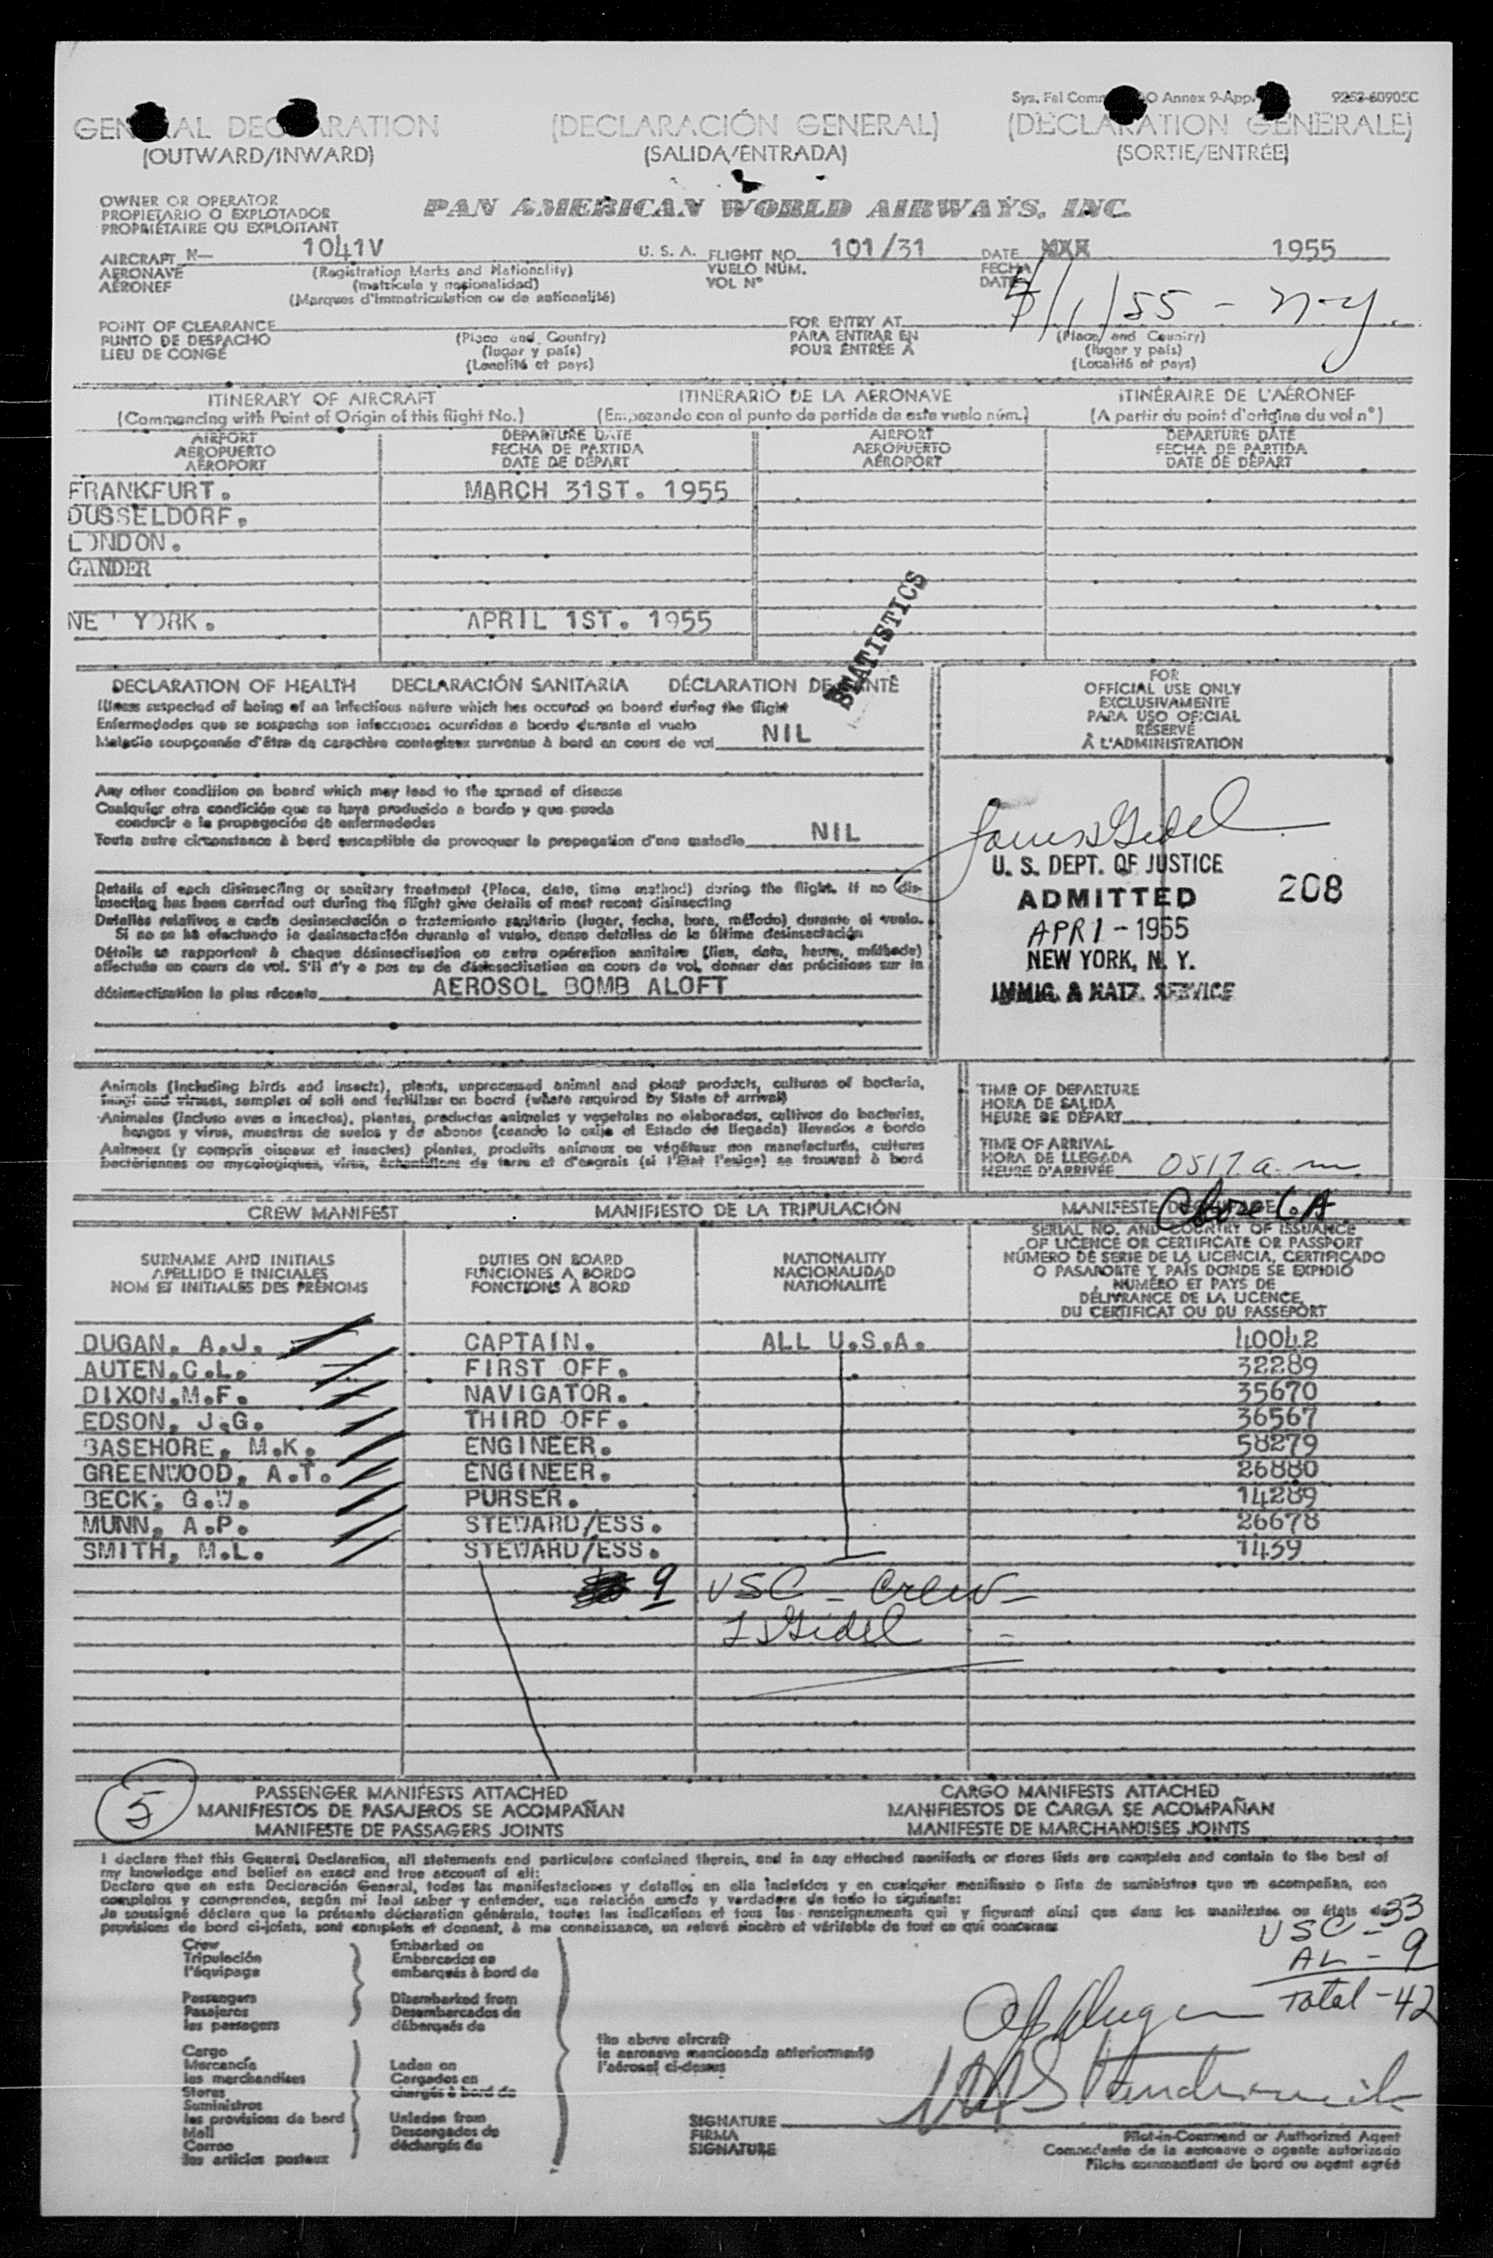 Annex 9-App. 9253-60905C
(DECLARACIÓN GENERAL)
(OUTWARD/INWARD) (SALIDA/ENTRADA) (SORTIE/ENTRÉE)
OWNER OR OPERATOR
PROPIETARIO O EXPLOTADOR
PROPRIÉTAIRE OU EXPLOITANT
PAN AMERICAN WORLD AIRWAYS, INC.
AIRCRAFT N— 1041V U. S. A. FLIGHT NO. 101/31 DATE 1955
AERONAVE (Registration Marks and Nationality) VUELO NÚM. FECHA
AÉRONEF (matrícula y nacionalidad) VOL N° DATE
(Marques d'immatriculation ou de nationalité)
4/1/55 - N-Y.
POINT OF CLEARANCE FOR ENTRY AT
PUNTO DE DESPACHO (Place and Country) PARA ENTRAR EN (Place and Country)
LIEU DE CONGÉ (lugar y país) POUR ENTRÉE À (lugar y país)
(Localité et pays) (Localité et pays)
ITINERARY OF AIRCRAFT ITINERARIO DE LA AERONAVE ITINÉRAIRE DE L'AÉRONEF
(Commencing with Point of Origin of this flight No.) (Empezando con el punto de partida de este vuelo núm.) (A partir du point d'origine du vol n°)
AIRPORT DEPARTURE DATE AIRPORT DEPARTURE DATE
AEROPUERTO FECHA DE PARTIDA AEROPUERTO FECHA DE PARTIDA
AÉROPORT DATE DE DÉPART AÉROPORT DATE DE DÉPART
FRANKFURT. MARCH 31ST. 1955
DUSSELDORF.
LONDON.
GANDER
NEW YORK. APRIL 1ST. 1955
STATISTICS
DECLARATION OF HEALTH DECLARACIÓN SANITARIA DÉCLARATION DE SANTÉ
Illness suspected of being of an infectious nature which has occured on board during the flight
Enfermedades que se sospecha son infecciosas ocurridas a bordo durante el vuelo
Maladie soupçonnée d'être de caractère contagieux survenue à bord en cours de vol NIL
Any other condition on board which may lead to the spread of disease
Cualquier otra condición que se haya producido a bordo y que pueda
conducir a la propagación de enfermedades
Toute autre circonstance à bord susceptible de provoquer la propagation d'une maladie NIL
Details of each disinsecting or sanitary treatment (Place, date, time method) during the flight. If no dis-
insecting has been carried out during the flight give details of most recent disinsecting
Detalles relativos a cada desinsectación o tratamiento sanitario (lugar, fecha, hora, método) durante el vuelo.
Si no se ha efectuado la desinsectación durante el vuelo, dense detalles de la última desinsectación
Détails se rapportant à chaque désinsectisation ou autre opération sanitaire (lieu, date, heure, méthode)
affectuée en cours de vol. S'il n'y a pas eu de désinsectisation en cours de vol, donner des précisions sur la
désinsectisation la plus récente AEROSOL BOMB ALOFT
FOR
OFFICIAL USE ONLY
EXCLUSIVAMENTE
PARA USO OFICIAL
RÉSERVÉ
À L'ADMINISTRATION
U. S. DEPT. OF JUSTICE
ADMITTED 208
APR 1 - 1955
NEW YORK, N. Y.
IMMIG. & NATZ. SERVICE
Animals (including birds and insects), plants, unprocessed animal and plant products, cultures of bacteria,
fungi and viruses, samples of soil and fertilizer on board (where required by State of arrival)
Animales (incluso aves e insectos), plantas, productos animales y vegetales no elaborados, cultivos de bacterias,
hongos y virus, muestras de suelos y de abonos (cuando lo exija el Estado de llegada) llevados a bordo
Animaux (y compris oiseaux et insectes) plantes, produits animaux ou végétaux non manufacturés, cultures
bactériennes ou mycologiques, virus, échantillons de terre et d'engrais (si l'État l'exige) se trouvant à bord
TIME OF DEPARTURE
HORA DE SALIDA
HEURE DE DÉPART
TIME OF ARRIVAL
HORA DE LLEGADA
HEURE D'ARRIVÉE 0517 a. m
CREW MANIFEST MANIFIESTO DE LA TRIPULACIÓN MANIFESTE
SURNAME AND INITIALS
APELLIDO E INICIALES
NOM ET INITIALES DES PRÉNOMS
DUTIES ON BOARD
FUNCIONES A BORDO
FONCTIONS À BORD
NATIONALITY
NACIONALIDAD
NATIONALITÉ
SERIAL NO. AND COUNTRY OF ISSUANCE
OF LICENCE OR CERTIFICATE OR PASSPORT
NÚMERO DE SERIE DE LA LICENCIA, CERTIFICADO
O PASAPORTE Y PAÍS DONDE SE EXPIDIÓ
NUMÉRO ET PAYS DE
DÉLIVRANCE DE LA LICENCE,
DU CERTIFICAT OU DU PASSEPORT
DUGAN, A.J. CAPTAIN. ALL U.S.A. 40042
AUTEN,C.L. FIRST OFF. 32289
DIXON,M.F. NAVIGATOR. 35670
EDSON, J.G. THIRD OFF. 36567
BASEHORE, M.K. ENGINEER. 58279
GREENWOOD, A.T. ENGINEER. 26880
BECK, G.W. PURSER. 14289
MUNN, A.P. STEWARD/ESS. 26678
SMITH, M.L. STEWARD/ESS. 1439
9 USC - Crew -
5
PASSENGER MANIFESTS ATTACHED CARGO MANIFESTS ATTACHED
MANIFIESTOS DE PASAJEROS SE ACOMPAÑAN MANIFIESTOS DE CARGA SE ACOMPAÑAN
MANIFESTE DE PASSAGERS JOINTS MANIFESTE DE MARCHANDISES JOINTS
I declare that this General Declaration, all statements and particulars contained therein, and in any attached manifests or stores lists are complete and contain to the best of
my knowledge and belief an exact and true account of all:
Declaro que en esta Declaración General, todas las manifestaciones y detalles en ella incluídos y en cualquier manifiesto o lista de suministros que se acompañan, son
completos y comprenden, según mi leal saber y entender, una relación exacta y verdadera de todo lo siguiente:
Je soussigné déclare que la présente déclaration générale, toutes les indications et tous les renseignements qui y figurent ainsi que dans les manifestes ou états de
provisions de bord ci-joints, sont complets et donnent, à ma connaissance, un relevé sincère et véritable de tout ce qui concerne
USC - 33
AL - 9
Total - 42
Crew
Tripulación
l'équipage
Passengers
Pasajeros
les passagers
Cargo
Mercancía
les marchandises
Stores
Suministros
les provisions de bord
Mail
Correo
les articles postaux
Embarked on
Embarcados en
embarqués à bord de
Disembarked from
Desembarcados de
débarqués de
Laden on
Cargados en
chargés à bord de
Unladen from
Descargados de
déchargés de
the above aircraft
la aeronave mencionada anteriormente
l'aéronef ci-dessus
SIGNATURE
FIRMA
SIGNATURE
Pilot-in-Command or Authorized Agent
Comandante de la aeronave o agente autorizado
Pilote commandant de bord ou agent agréé